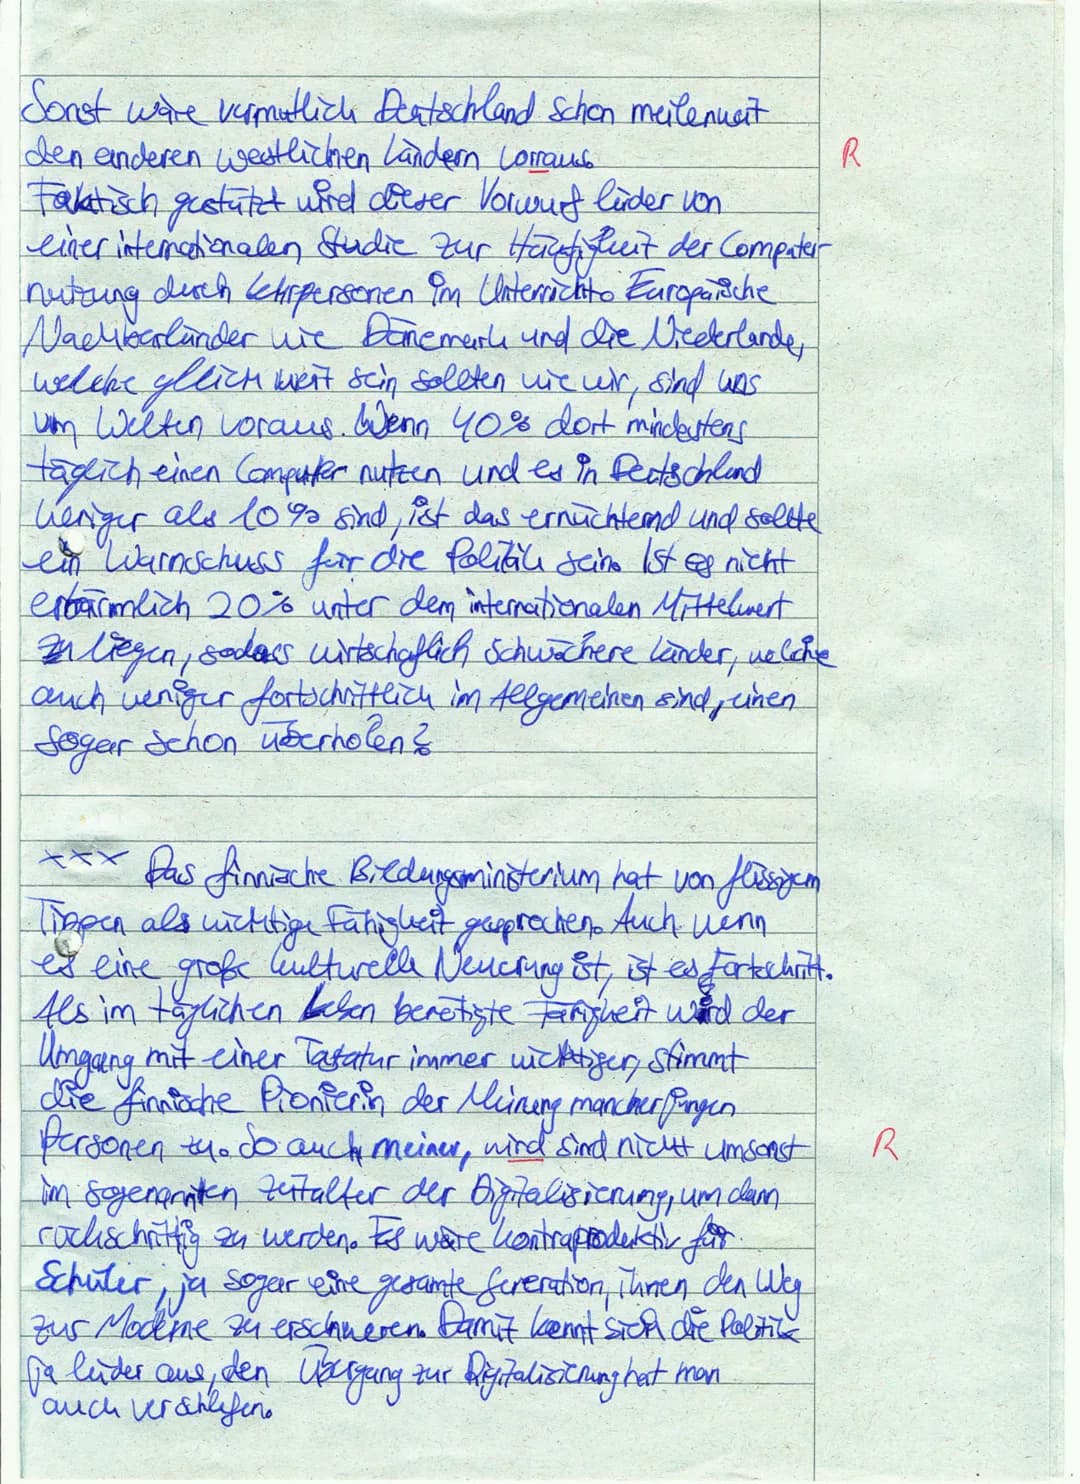 Sonst wäre vermutlich Deutschland schon meilenweit
den anderen westlichen Ländern vorraus. R
Faktisch gestützt wird dieser Vorwurf leider von
einer internationalen Studie zur Häufigkeit der Computer-
nutzung durch Lehrpersonen im Unterricht. Europäische
Nachbarländer wie Dänemark und die Niederlande,
welche gleich weit sein sollten wie wir, sind uns
um Welten voraus. Wenn 40% dort mindestens
täglich einen Computer nutzen und es in Deutschland
weniger als 10% sind, ist das ernüchternd und sollte
ein Warnschuss für die Politik sein. Ist es nicht
erbärmlich 20% unter dem internationalen Mittelwert
zu liegen, sodass wirtschaflich schwächere Länder, welche
auch weniger fortschrittlich im Allgemeinen sind, einen
sogar schon überholen?
xxx Das finnische Bildungsministerium hat von flüssigem
Tippen als wichtige Fähigkeit gesprochen. Auch wenn
es eine große kulturelle Neuerung ist, ist es Fortschritt.
Als im täglichen Leben benötigte Fähigkeit wird der
Umgang mit einer Tastatur immer wichtiger, stimmt
die finnische Pionierin der Meinung mancher jungen
Personen zu. So auch meiner, wird sind nicht umsonst R
im sogenannten Zeitalter der Digitalisierung, um dann
rückschrittig zu werden. Es wäre kontraproduktiv für
Schüler, ja sogar eine gesamte Generation, ihnen den Weg
zur Moderne zu erschweren. Damit kennt sich die Politik
ja leider aus, den Übergang zur Digitalisierung hat man
auch verschlafen.